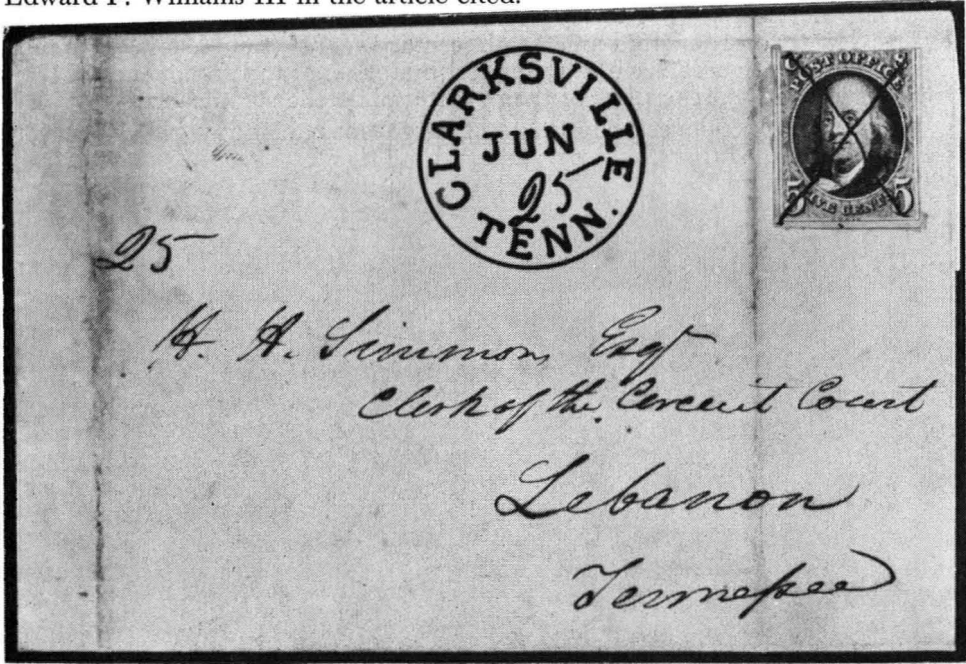 Edward P. Williams III in the article cited.
CLARKSVILLE
JUN
25
TENN.
POST OFFICE
5 FIVE CENTS 5
25
H. H. Simmons Esqr
Clerk of the Circuit Court
Lebanon
Tennessee